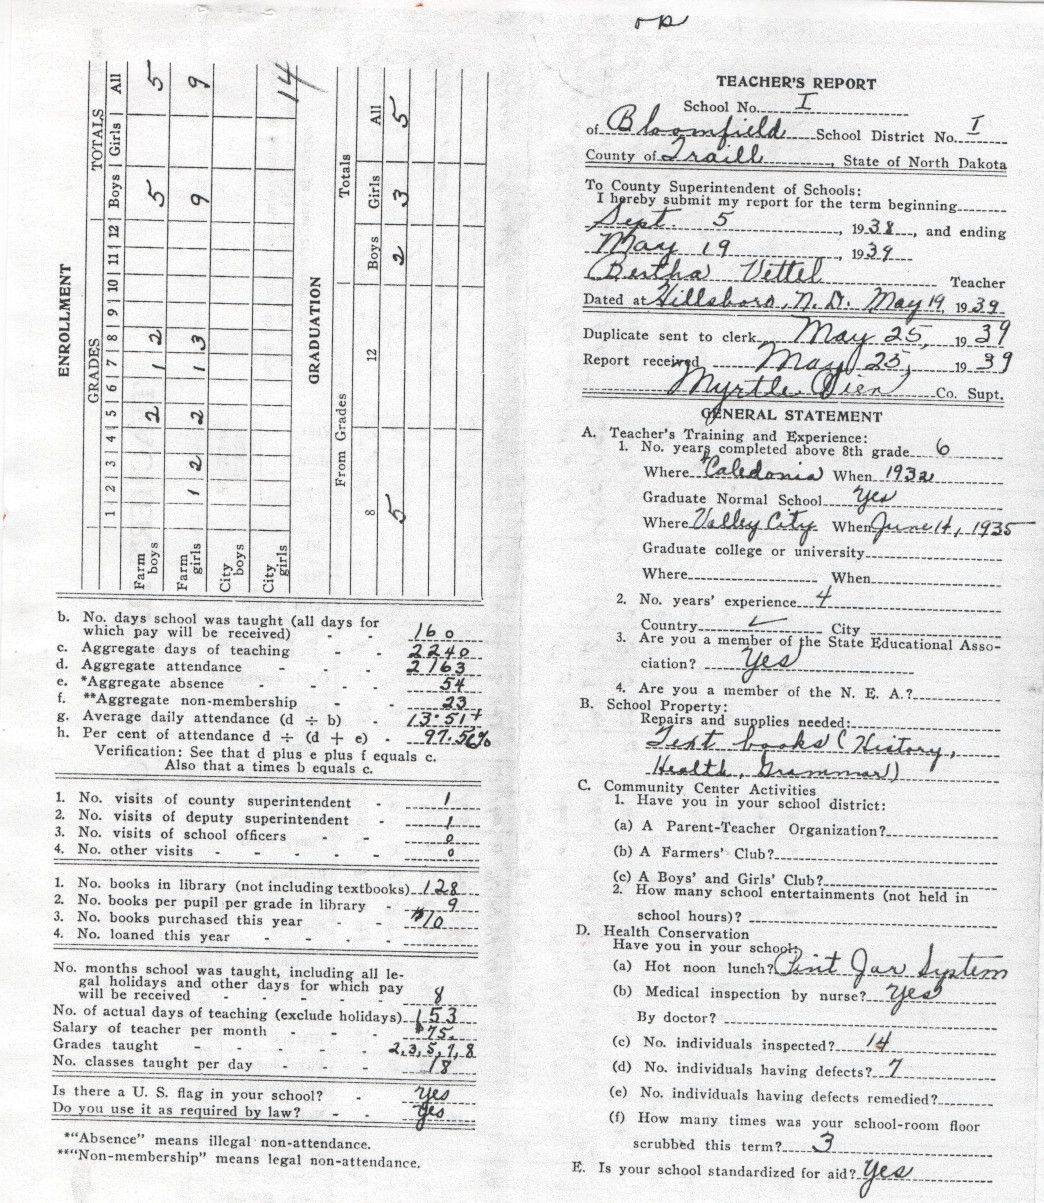 OR
ENROLLMENT
GRADES TOTALS
1 2 3 4 5 6 7 8 9 10 11 12 Boys Girls All
Farm boys 2 1 2 5 5
Farm girls 1 2 2 1 3 9 9
City boys
City girls 14
GRADUATION
From Grades Totals
8 12 Boys Girls All
5 2 3 5
b. No. days school was taught (all days for
which pay will be received) - - 160
c. Aggregate days of teaching - - 2240
d. Aggregate attendance - - - 2163
e. *Aggregate absence - - - - 54
f. **Aggregate non-membership - - 23
g. Average daily attendance (d ÷ b) - 13.51+
h. Per cent of attendance d ÷ (d + e) - 97.56%
Verification: See that d plus e plus f equals c.
Also that a times b equals c.
1. No. visits of county superintendent - 1
2. No. visits of deputy superintendent - 1
3. No. visits of school officers - - 0
4. No. other visits - - - - - 0
1. No. books in library (not including textbooks) 128
2. No. books per pupil per grade in library - 9
3. No. books purchased this year - - $10
4. No. loaned this year - - - -
No. months school was taught, including all le-
gal holidays and other days for which pay
will be received - - - - - - 8
No. of actual days of teaching (exclude holidays) 153
Salary of teacher per month - - - $75.
Grades taught - - - - - 2, 3, 5, 7, 8
No. classes taught per day - - - 18
Is there a U. S. flag in your school? - yes
Do you use it as required by law? - - yes
*"Absence" means illegal non-attendance.
**"Non-membership" means legal non-attendance.
TEACHER'S REPORT
School No. I
of Bloomfield School District No. I
County of Traill, State of North Dakota
To County Superintendent of Schools:
I hereby submit my report for the term beginning
Sept. 5, 1938, and ending
May 19, 1939
Bertha Vettel Teacher
Dated at Hillsboro, N.D. May 19, 1939
Duplicate sent to clerk May 25, 1939
Report received May 25, 1939
Myrtle Oien Co. Supt.
GENERAL STATEMENT
A. Teacher's Training and Experience:
1. No. years completed above 8th grade 6
Where Caledonia When 1932
Graduate Normal School Yes
Where Valley City When June 14, 1935
Graduate college or university
Where When
2. No. years' experience 4
Country ✓ City
3. Are you a member of the State Educational Asso-
ciation? Yes
4. Are you a member of the N. E. A.?
B. School Property:
Repairs and supplies needed:
Text books (History,
Health, Grammar)
C. Community Center Activities
1. Have you in your school district:
(a) A Parent-Teacher Organization?
(b) A Farmers' Club?
(c) A Boys' and Girls' Club?
2. How many school entertainments (not held in
school hours)?
D. Health Conservation
Have you in your school:
(a) Hot noon lunch? Pint Jar System
(b) Medical inspection by nurse? yes
By doctor?
(c) No. individuals inspected? 14
(d) No. individuals having defects? 7
(e) No. individuals having defects remedied?
(f) How many times was your school-room floor
scrubbed this term? 3
E. Is your school standardized for aid? Yes